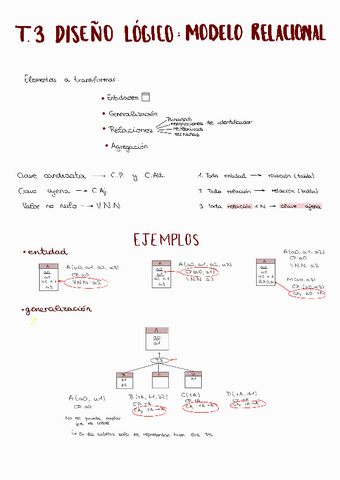 T.3 DISEÑO LÓGICO: MODELO RELACIONAL
Elementos a transformar:
• Entidades
• Generalización
• Relaciones
Binarias
restricciones de identificador
reflexivas
ternarias
• Agregación
Clave candidata → C.P. y C.Alt.
Clave ajena → C.Aj.
Valor no nulo → V.N.N.
1. Toda entidad → relación (tabla)
2. Toda relación → relación (tabla)
3. toda relación 1:N → clave ajena
EJEMPLOS
• entidad
A
a0
a1
a2
a3
A (a0, a1, a2, a3)
CP: a0
VNN: a2
A
a0
a1
a2
A (a0, a1, a2, a3)
CP: (a0, a1)
VNN: a2
A
a0
a1
a2
A (a0, a1, a2)
CP: a0
VNN: a2
M (a0, a3)
CP: (a0, a3)
• generalización
A
a0
a1
TS
B
C
D
A (a0, a1)
CP: a0
B (rA, b1, b2)
CP: rA
CAj: rA → A
C (rA)
CP: rA
CAj: rA → A
D (rA, d1)
CP: rA
CAj: rA → A
No se puede
que es total